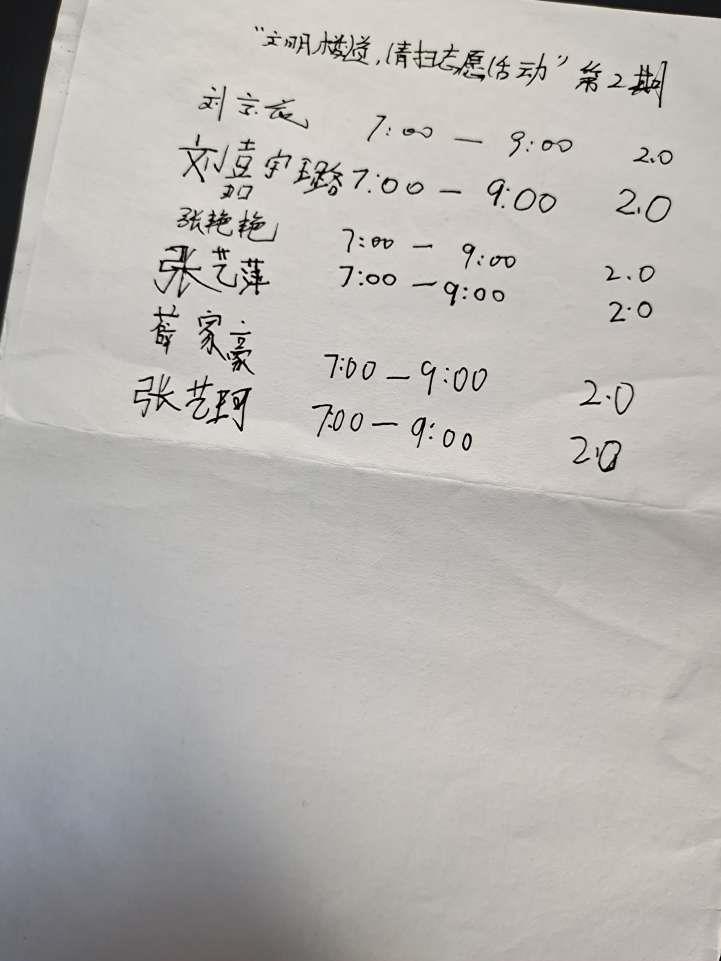 “文明楼道,清扫志愿活动”第2期
刘京辰 7:00 — 9:00 2.0
刘嘉宇璐 7:00 — 9:00 2.0
张艳艳 7:00 — 9:00 2.0
张艺萍 7:00 — 9:00 2.0
薛家豪 7:00 — 9:00 2.0
张艺珂 7:00 — 9:00 2.0